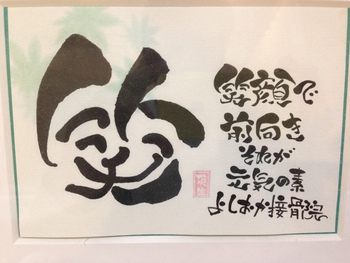 笑
笑顔で
前向き
それが
元気の素
よしおか接骨院